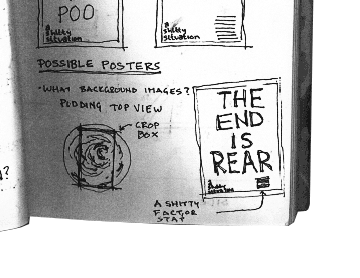 POO
a
shitty
situation
a
shitty
situation
POSSIBLE POSTERS
· WHAT BACKGROUND IMAGES?
PUDDING TOP VIEW
CROP
BOX
?
THE
END
IS
REAR
A SHITTY
FACTOR
STAT